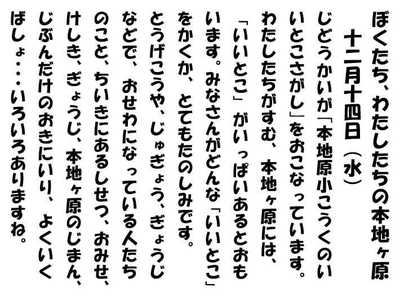 ぼくたち、わたしたちの本地ヶ原
十二月十四日（水）
じどうかいが「本地原小こうくのい
いとこさがし」をおこなっています。
わたしたちがすむ、本地ヶ原には、
「いいとこ」がいっぱいあるとおも
います。みなさんがどんな「いいとこ」
をかくか、とてもたのしみです。
とうげこうや、じゅぎょう、ぎょうじ
などで、おせわになっている人たち
のこと、ちいきにあるしせつ、おみせ、
けしき、ぎょうじ、本地ヶ原のじまん、
じぶんだけのおきにいり、よくいく
ばしょ・・・いろいろありますね。